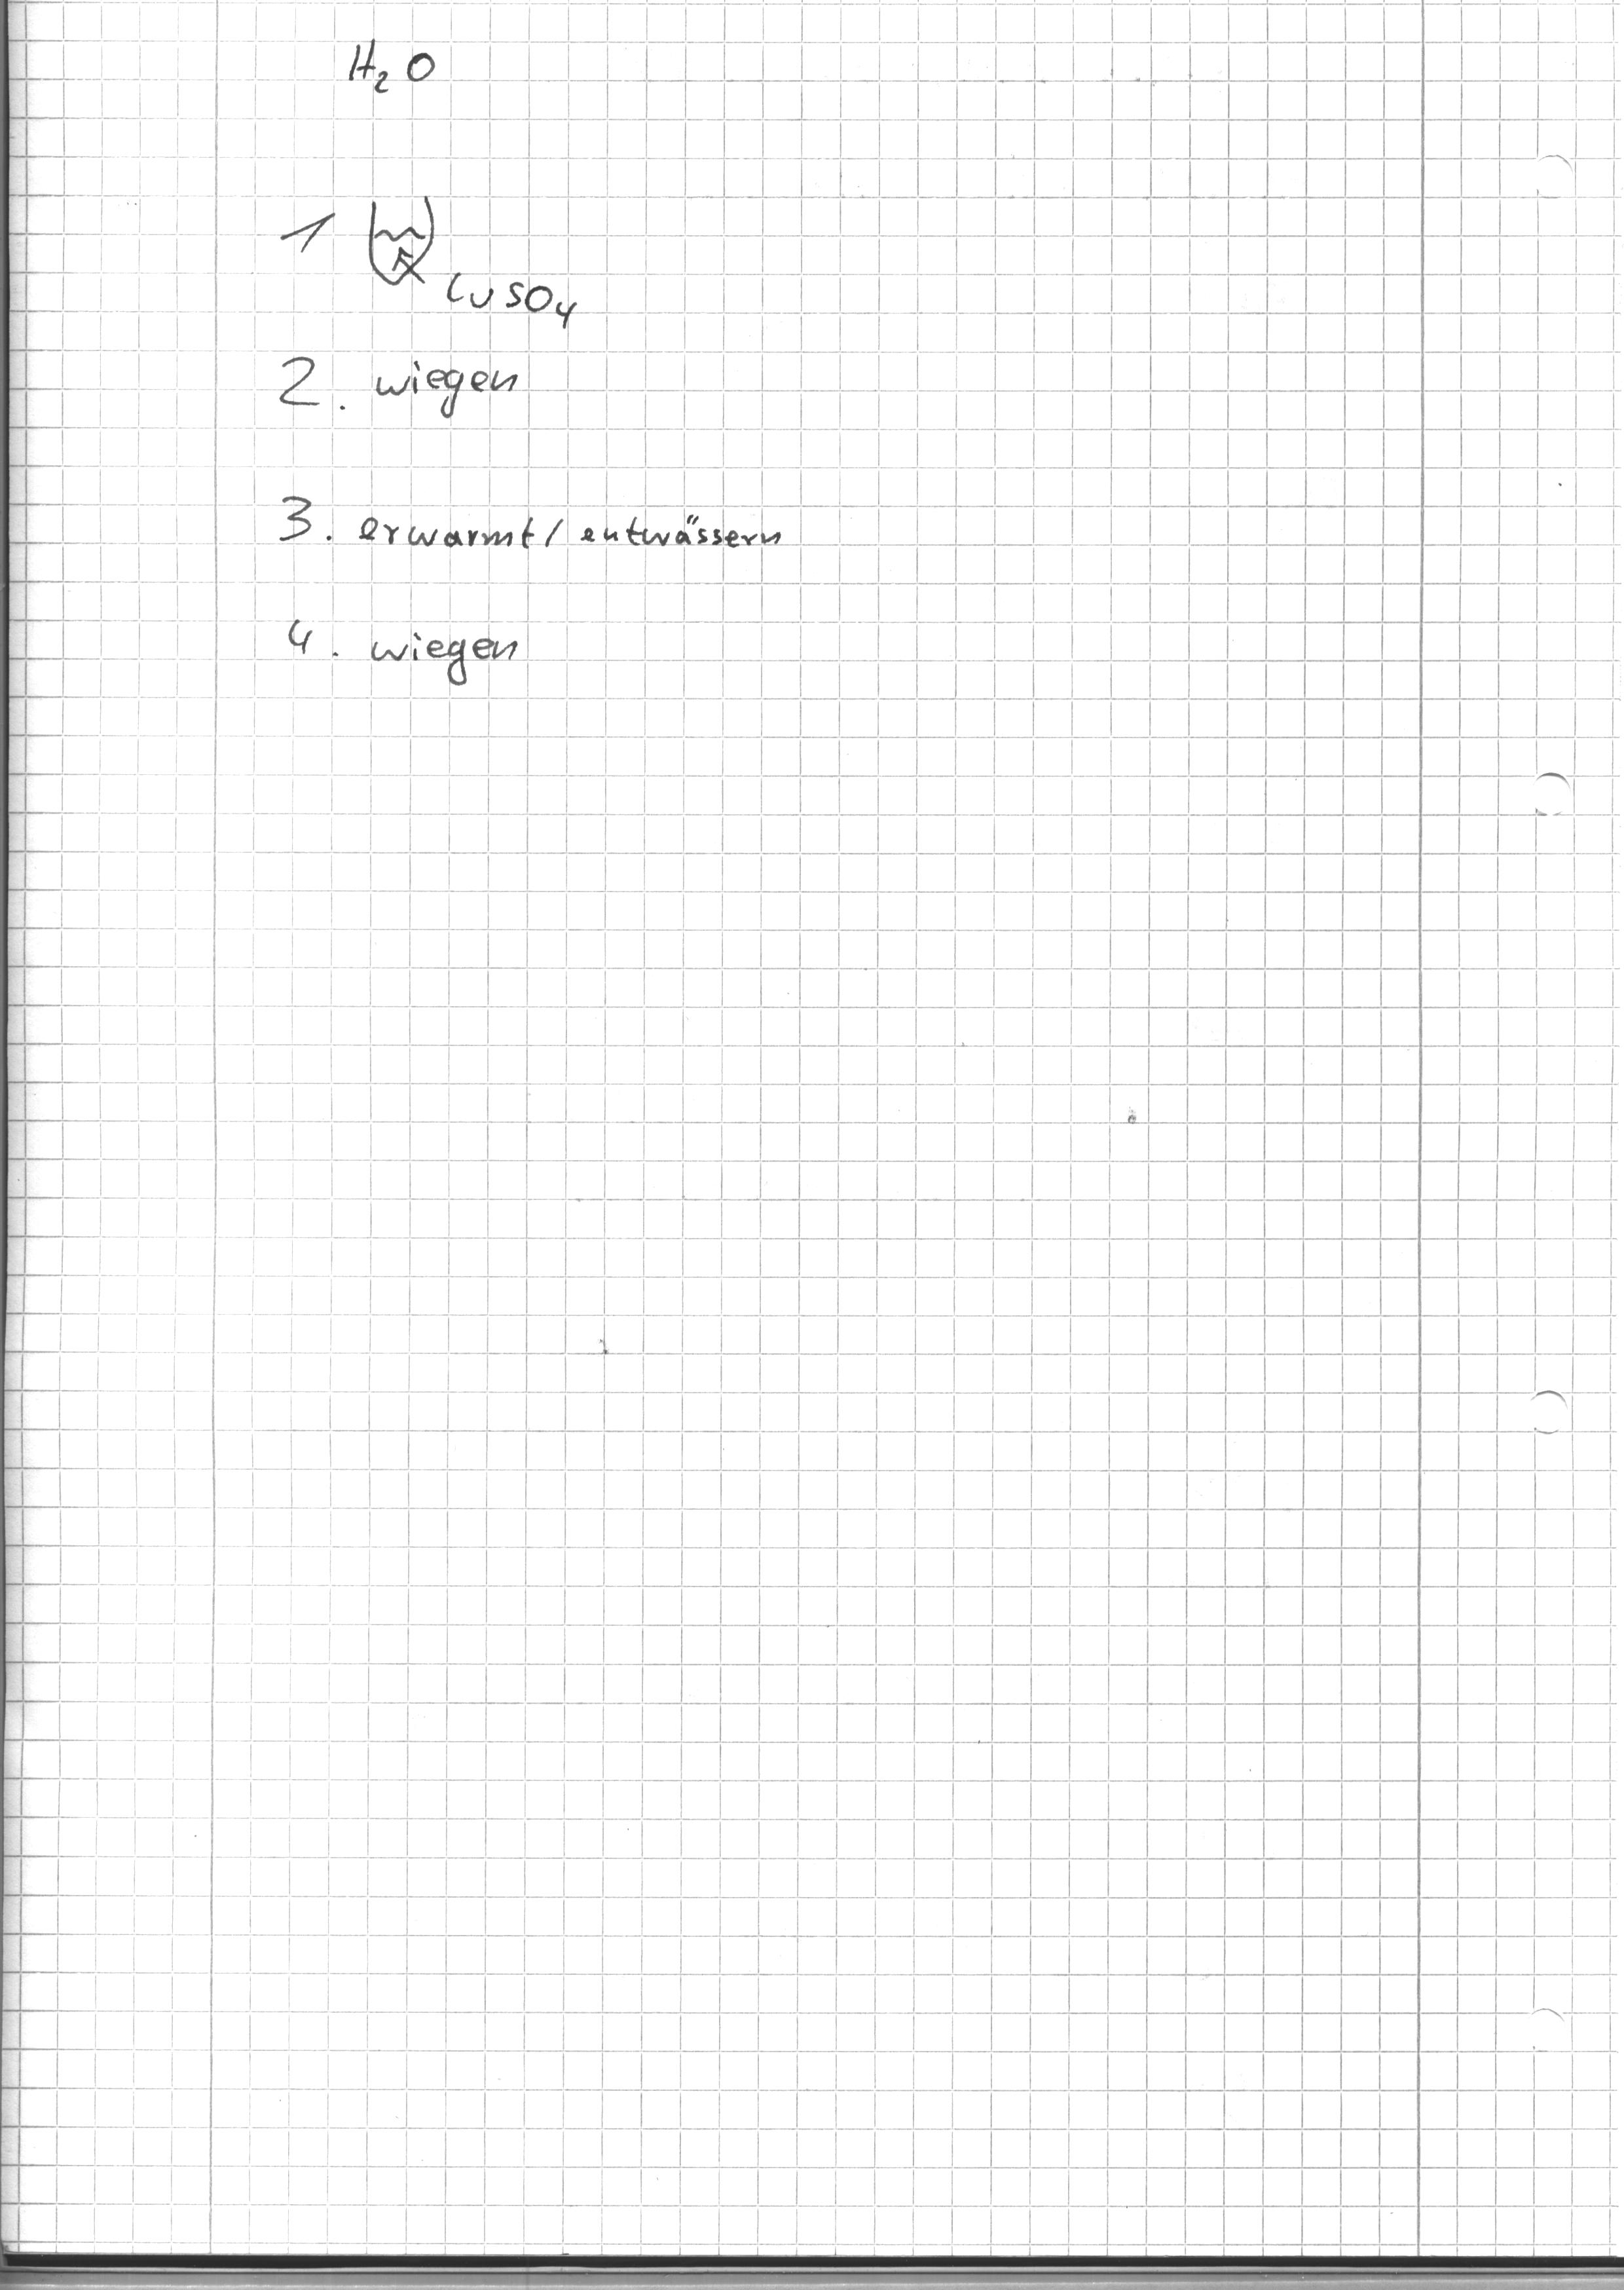 H₂O
1
CuSO₄
2. wiegen
3. erwarmt/entwässern
4. wiegen